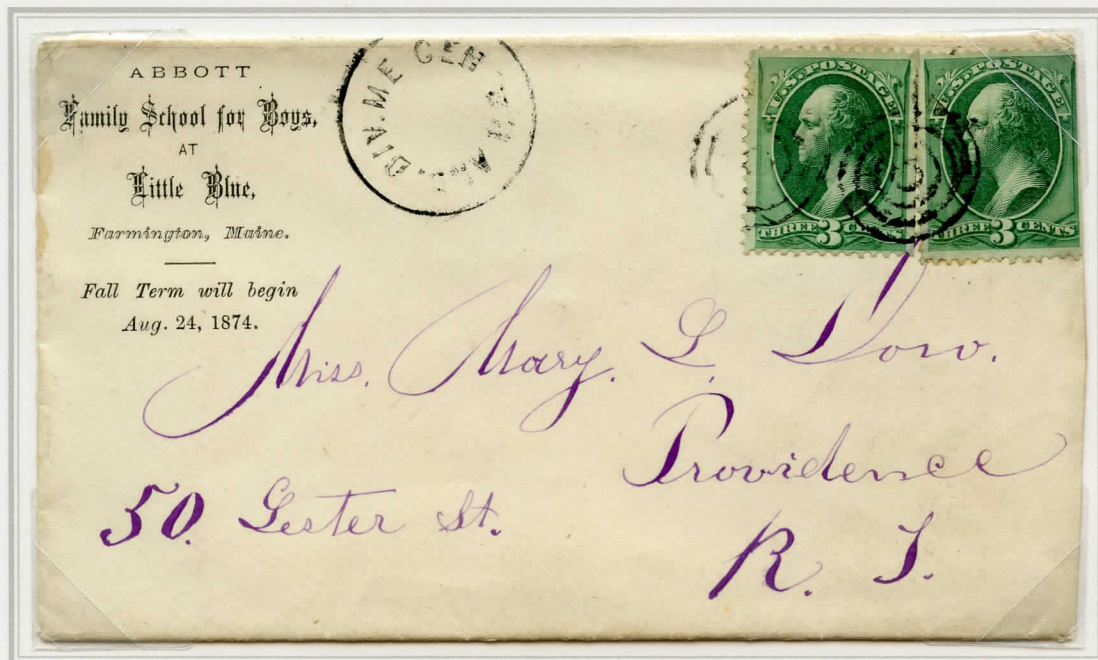 ABBOTT
Family School for Boys,
AT
Little Blue,
Farmington, Maine.
Fall Term will begin
Aug. 24, 1874.
DIV. ME CEN
U.S. POSTAGE
THREE 3 CENTS
U.S. POSTAGE
THREE 3 CENTS
Miss. Mary. L. Dow.
Providence
50. Lester St.
R. I.